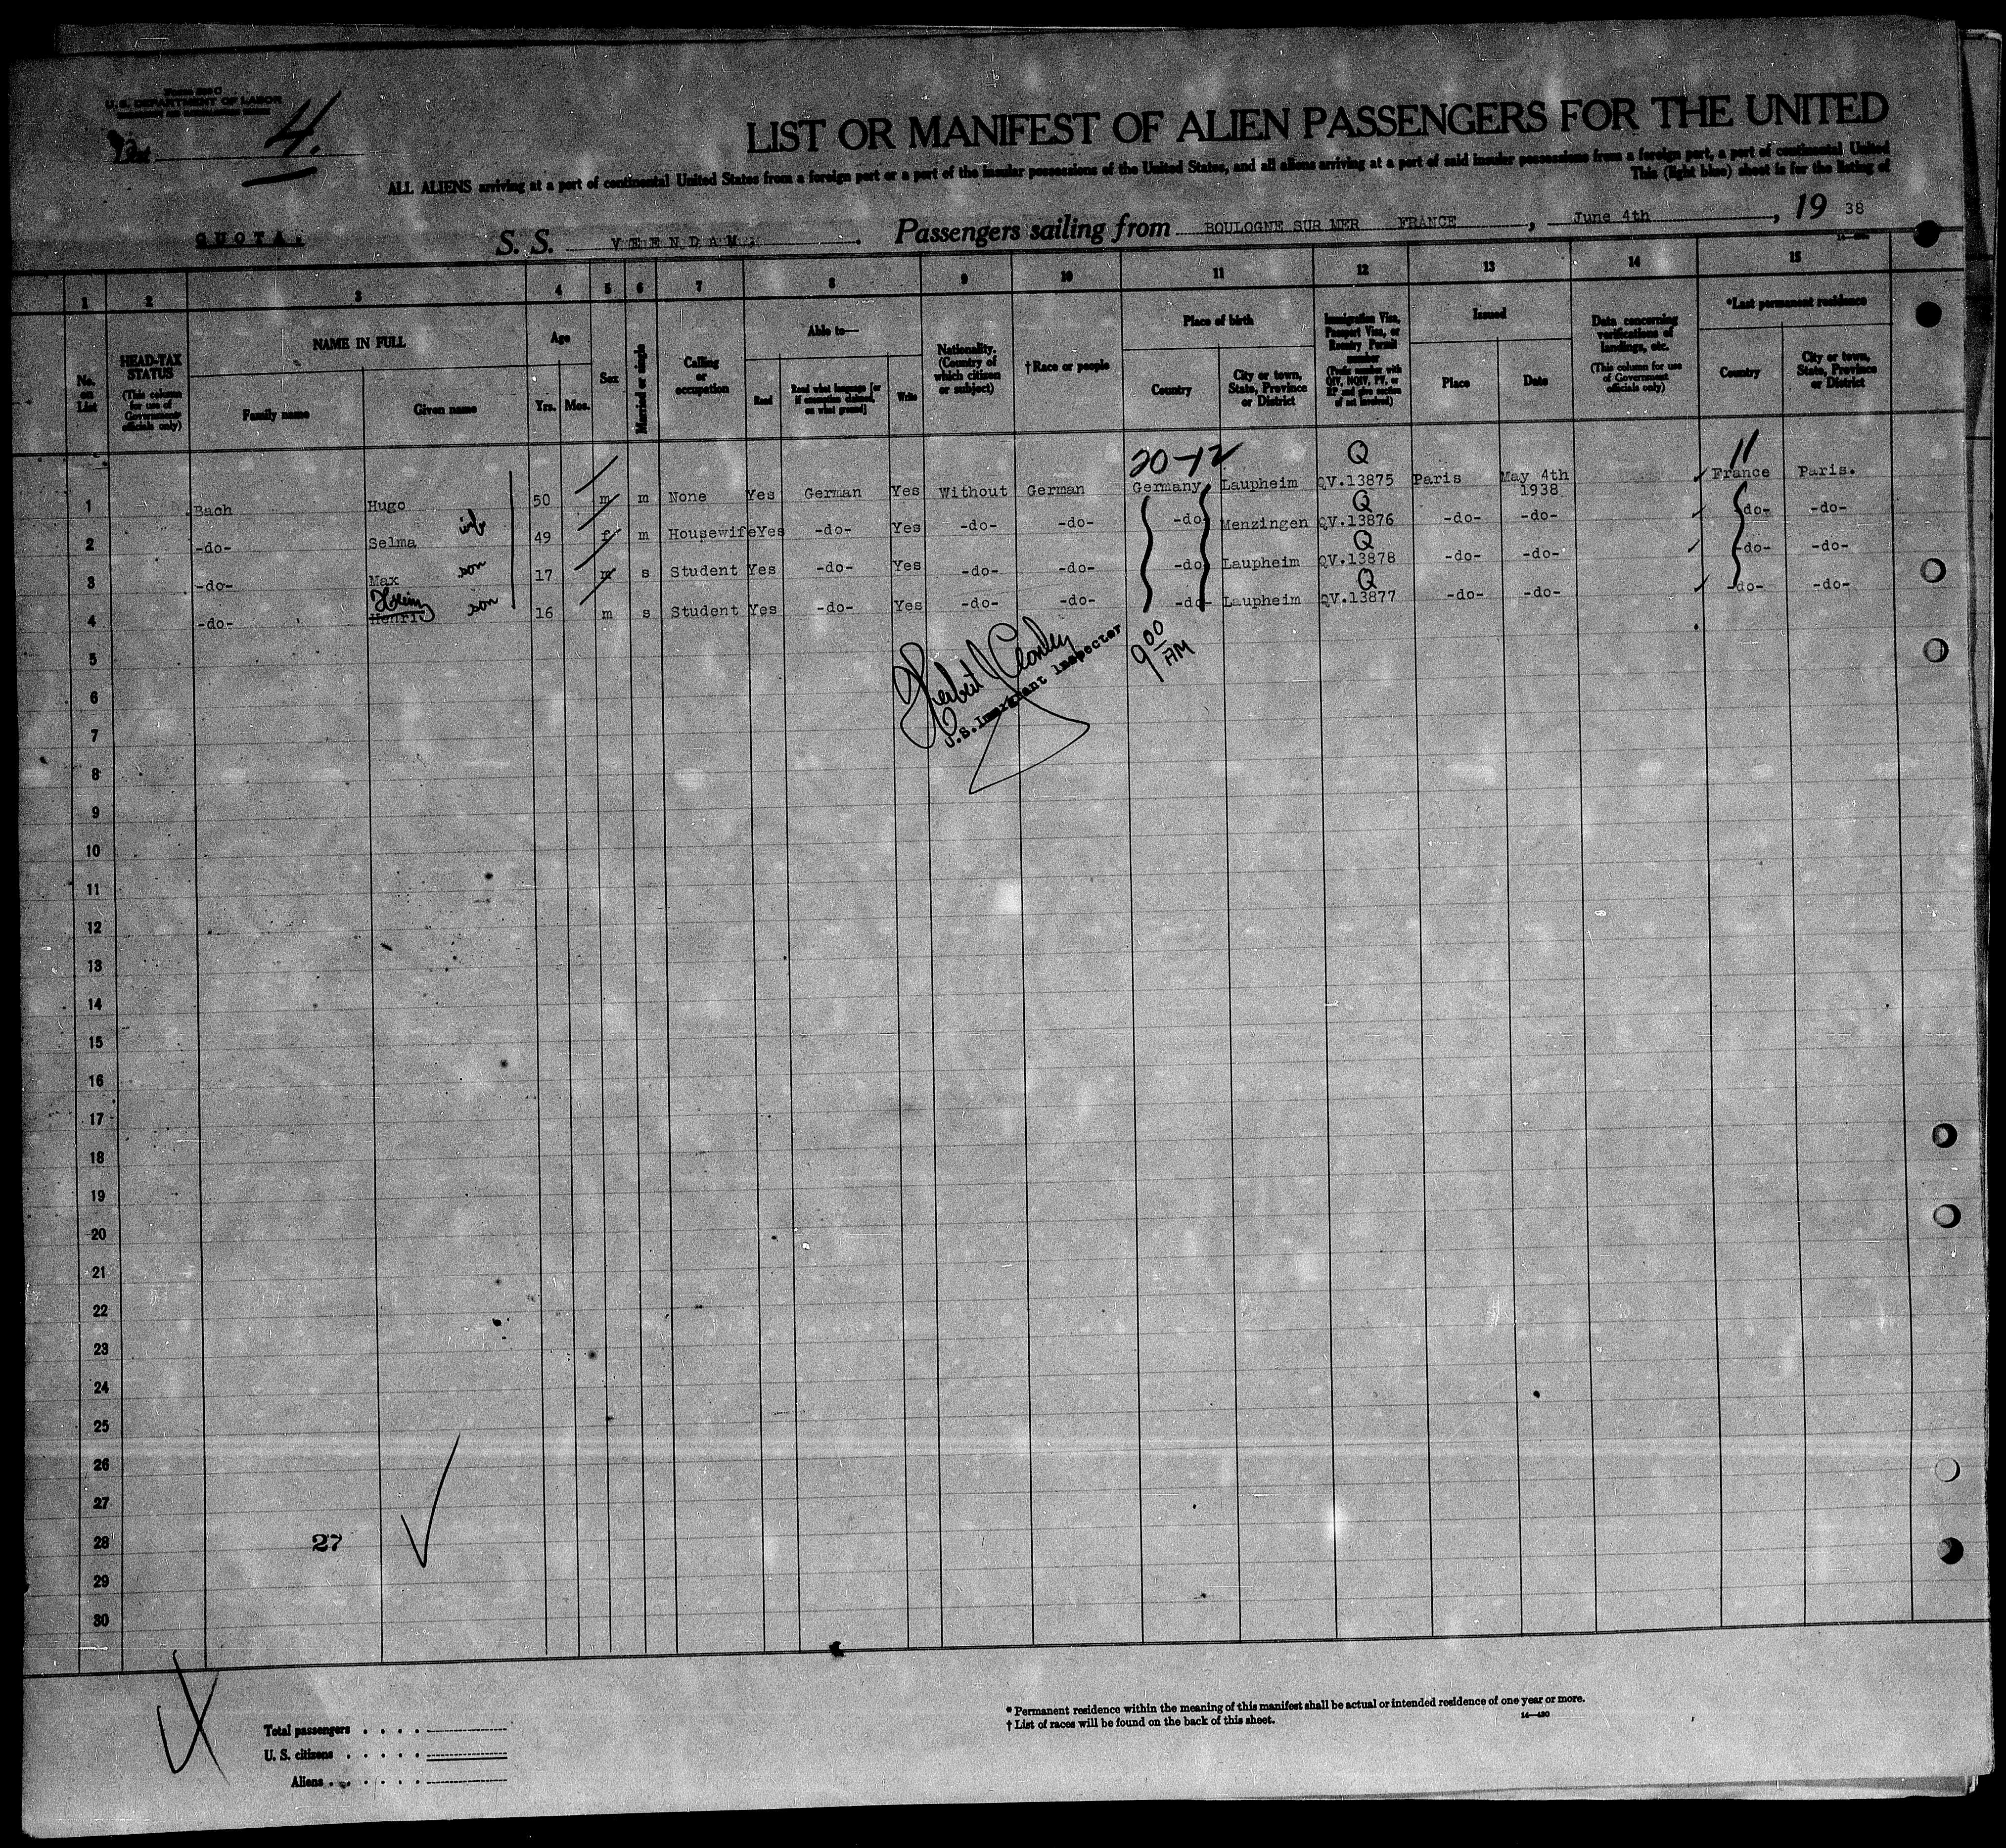 U. S. DEPARTMENT OF LABOR
4.
LIST OR MANIFEST OF ALIEN PASSENGERS FOR THE UNITED
ALL ALIENS arriving at a port of continental United States from a foreign port or a port of the insular possessions of the United States, and all aliens arriving at a port of said insular possessions from a foreign port, a port of continental United
This (light blue) sheet is for the listing of
QUOTA. S. S. VEENDAM. Passengers sailing from BOULOGNE SUR MER FRANCE, June 4th, 19 38
1 2 3 4 5 6 7 8 9 10 11 12 13 14 15
No. on List
HEAD-TAX STATUS (This column for use of Government officials only)
NAME IN FULL Family name Given name
Age Yrs. Mos.
Sex
Married or single
Calling or occupation
Able to— Read Read what language [or if exemption claimed, on what ground] Write
Nationality. (Country of which citizen or subject)
†Race or people
Place of birth Country City or town, State, Province or District
Immigration Visa, Passport Visa, or Reentry Permit number (Prefix number with QIV, NQIV, PV, or RP and give section of act involved)
Issued Place Date
Data concerning verifications of landings, etc. (This column for use of Government officials only)
*Last permanent residence Country City or town, State, Province or District
20-12 Q 11
1 Bach Hugo 50 m m None Yes German Yes Without German Germany Laupheim QV.13875 Paris May 4th 1938 France Paris.
Q
2 -do- Selma wife 49 f m Housewife Yes -do- Yes -do- -do- -do- Menzingen QV.13876 -do- -do- -do- -do-
Q
3 -do- Max son 17 m s Student Yes -do- Yes -do- -do- -do- Laupheim QV.13878 -do- -do- -do- -do-
Q
4 -do- Henri son 16 m s Student Yes -do- Yes -do- -do- -do- Laupheim QV.13877 -do- -do- -do- -do-
Herbert J
U.S. Immigrant Inspector
9 00 AM
5
6
7
8
9
10
11
12
13
14
15
16
17
18
19
20
21
22
23
24
25
26
27
28 27
29
30
* Permanent residence within the meaning of this manifest shall be actual or intended residence of one year or more.
† List of races will be found on the back of this sheet.
14—430
Total passengers
U. S. citizens
Aliens